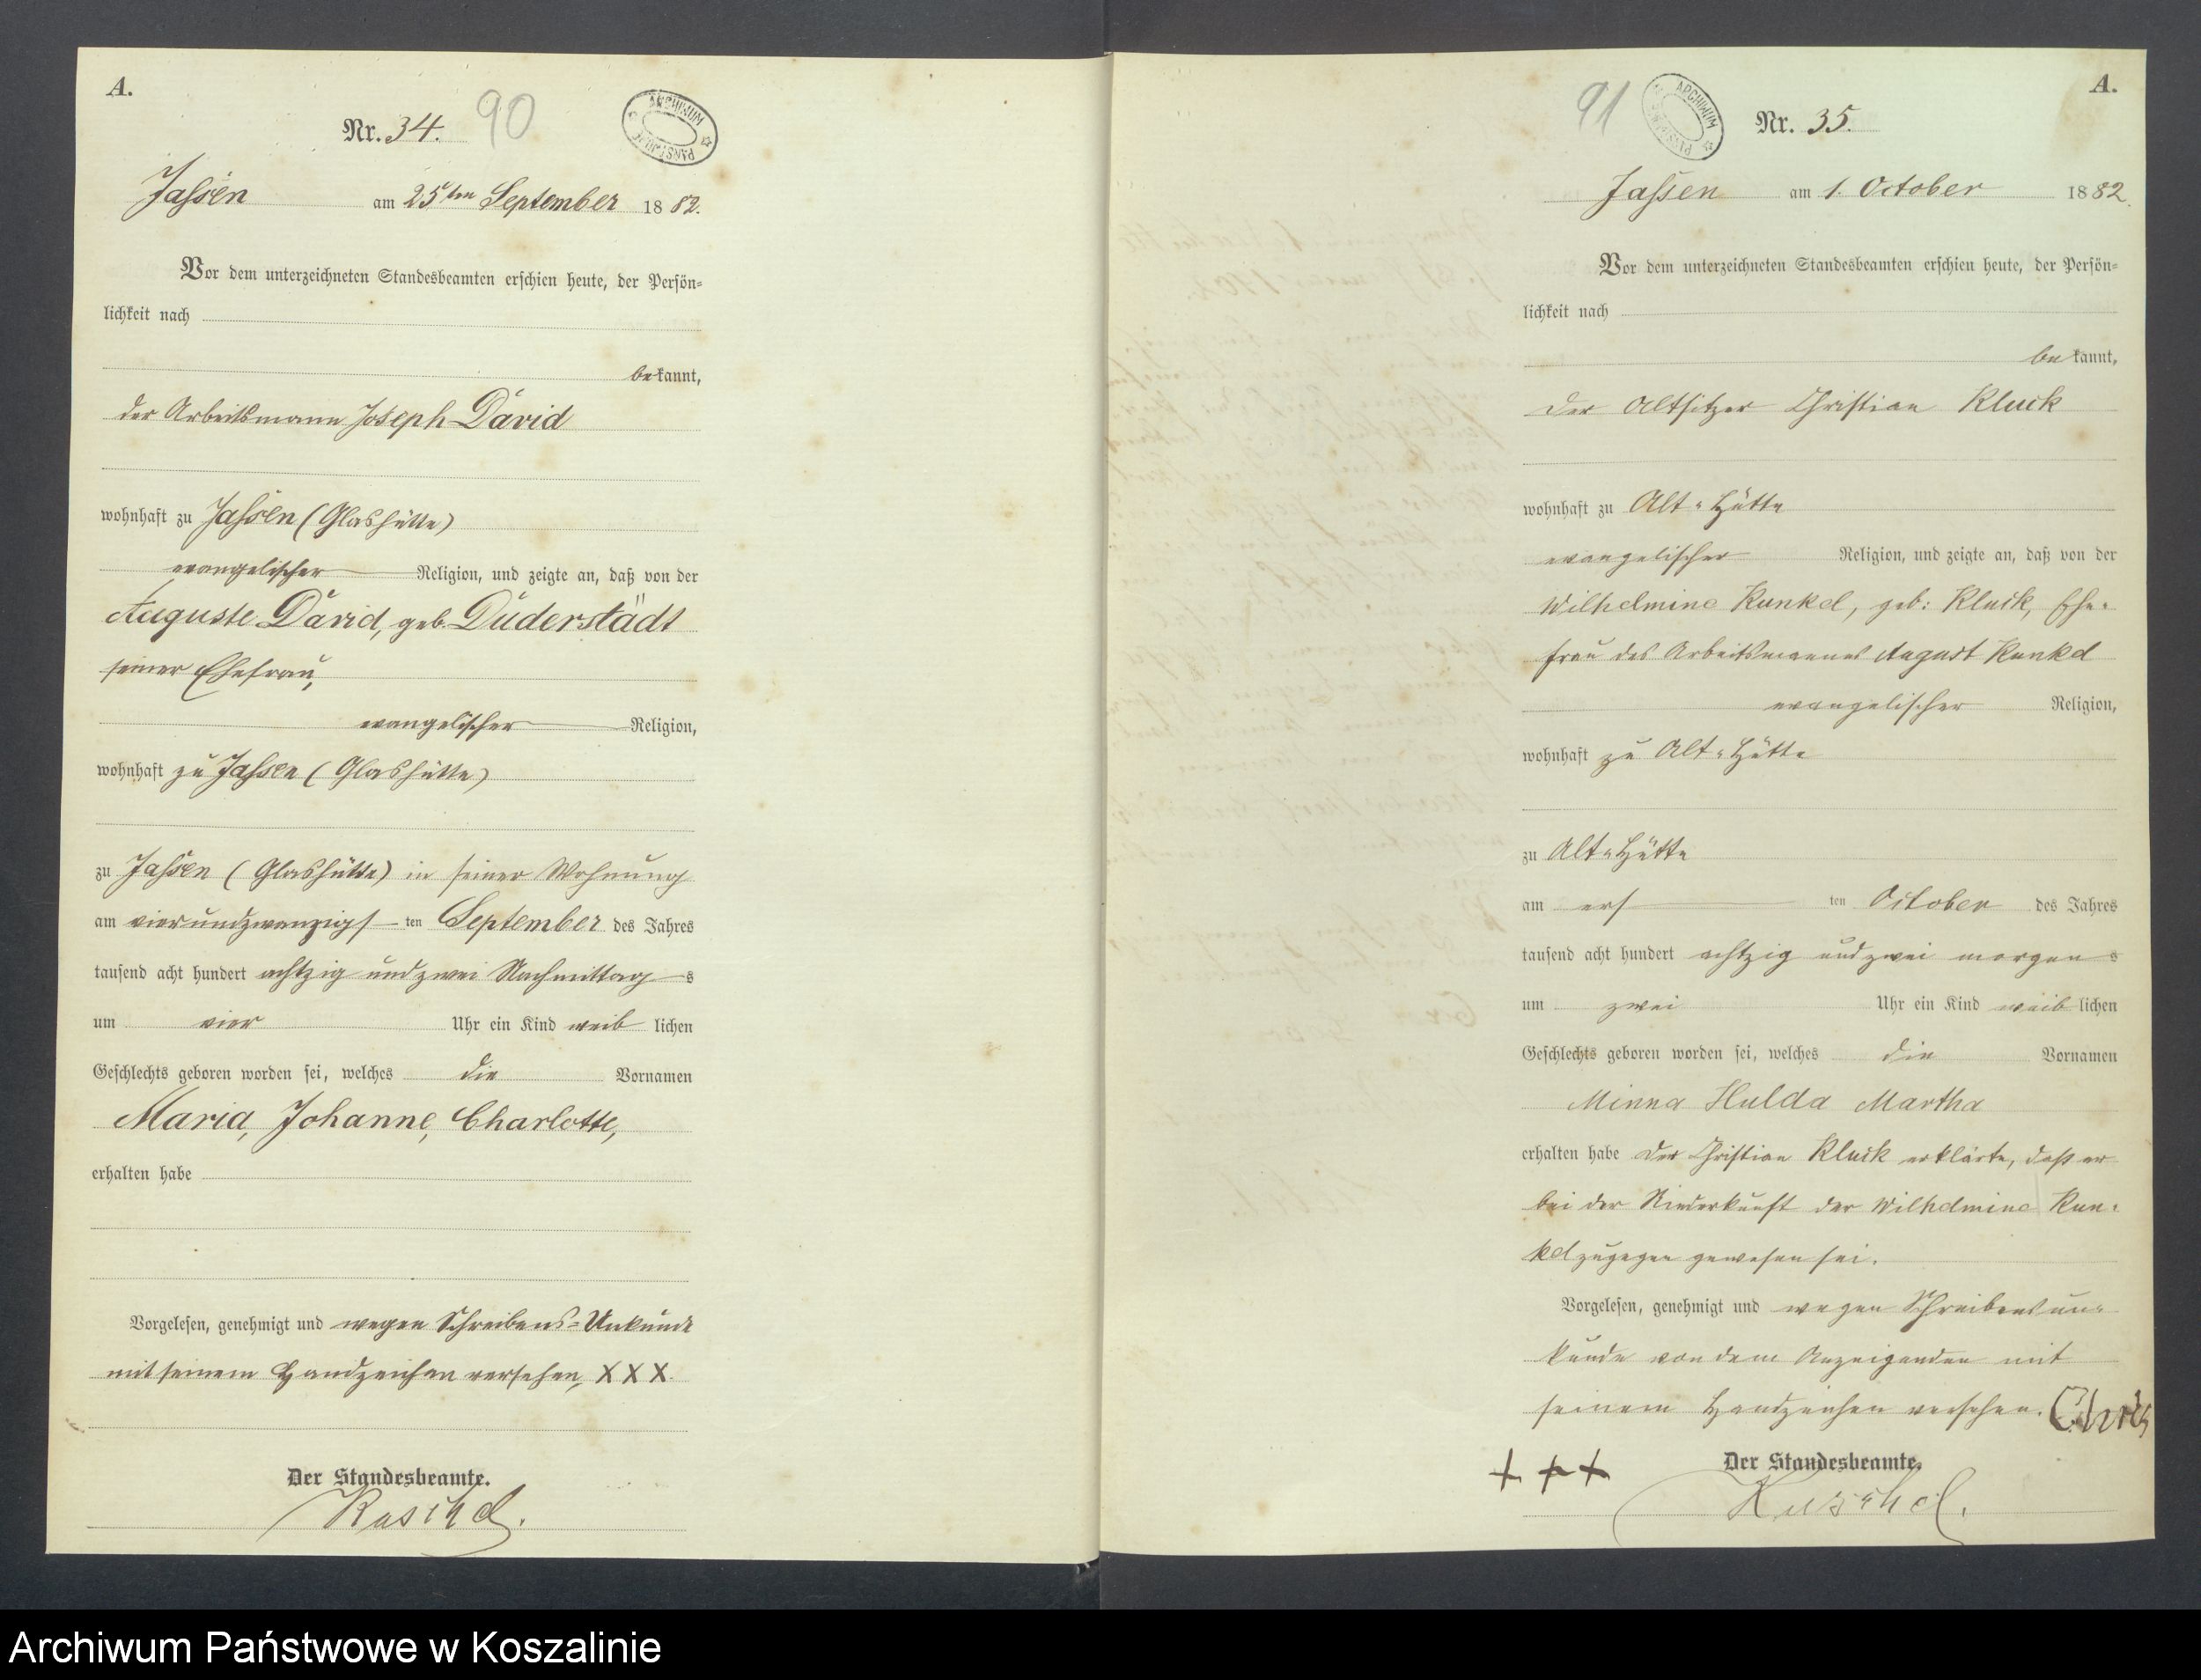 A.
Nr. 34.
90
ARCHIWUM PAŃSTWOWE
Jassen am 25ten September 1882.
Vor dem unterzeichneten Standesbeamten erschien heute, der Persön=
lichkeit nach
bekannt,
der Arbeitsmann Joseph David
wohnhaft zu Jassen (Glashütte)
evangelischer Religion, und zeigte an, daß von der
Auguste David, geb. Duderstädt
seiner Ehefrau,
evangelischer Religion,
wohnhaft zu Jassen (Glashütte)
zu Jassen (Glashütte) in seiner Wohnung
am vierundzwanzigs ten September des Jahres
tausend acht hundert achtzig und zwei Nachmittag s
um vier Uhr ein Kind weib lichen
Geschlechts geboren worden sei, welches die Vornamen
Maria, Johanne, Charlotte,
erhalten habe
Vorgelesen, genehmigt und wegen Schreibens=Unkunde
mit seinem Handzeichen versehen, X X X.
Der Standesbeamte.
Raschel.
91
ARCHIWUM PAŃSTWOWE
Nr. 35.
A.
Jassen am 1. October 1882.
Vor dem unterzeichneten Standesbeamten erschien heute, der Persön=
lichkeit nach
bekannt,
der Altsitzer Christian Kluck
wohnhaft zu Alt=Hütte
evangelischer Religion, und zeigte an, daß von der
Wilhelmine Kunkel, geb: Kluck, Ehe=
frau des Arbeitsmannes August Kunkel
evangelischer Religion,
wohnhaft zu Alt=Hütte
zu Alt=Hütte
am ers ten October des Jahres
tausend acht hundert achtzig und zwei morgen s
um zwei Uhr ein Kind weib lichen
Geschlechts geboren worden sei, welches die Vornamen
Minna Hulda Martha
erhalten habe Der Christian Kluck erklärte, daß er
bei der Niederkunft der Wilhelmine Kun=
kel zugegen gewesen sei.
Vorgelesen, genehmigt und wegen Schreibensun=
kunde von dem Anzeigenden mit
seinem Handzeichen versehen. Chris
+ + +
Der Standesbeamte.
Raschel.
Archiwum Państwowe w Koszalinie